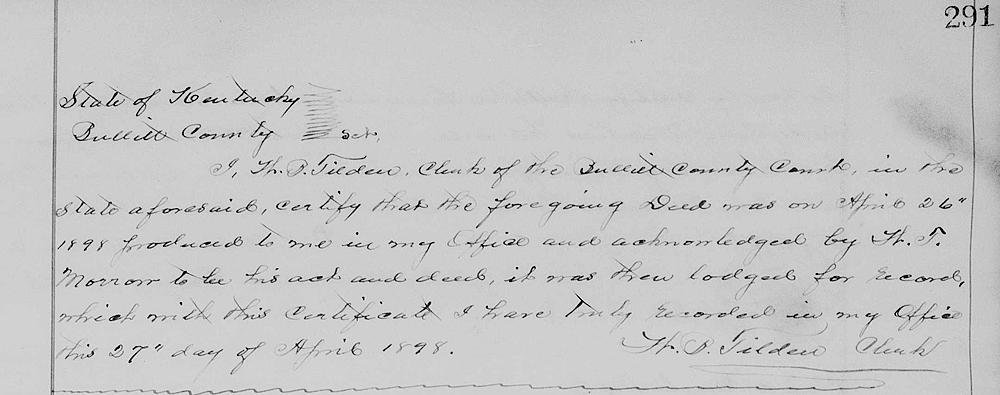 291
State of Kentucky
Bullitt County Sct,
I, W. P. Tilden, Clerk of the Bullitt County Court, in the
State aforesaid, certify that the foregoing Deed was on April 26"
1898 produced to me in my Office and acknowledged by W. T.
Morrow to be his act and deed, it was then lodged for record,
which with this Certificate I have truly recorded in my Office
this 27" day of April 1898.
W. P. Tilden Clerk